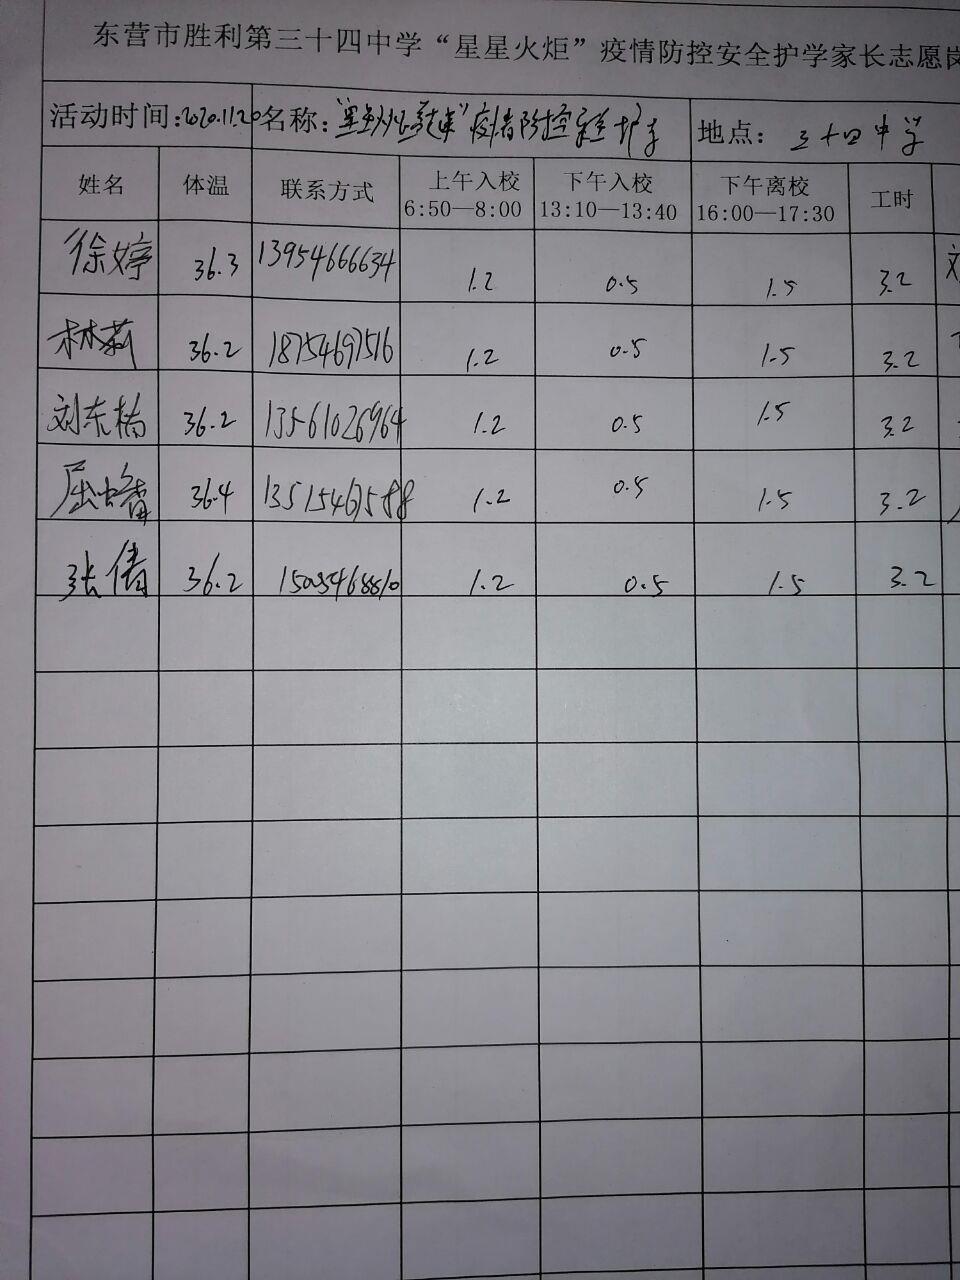 东营市胜利第三十四中学“星星火炬”疫情防控安全护学家长志愿岗
活动时间:2020.11.20 名称: 疫情防控安全护学 地点: 三十四中学
姓名 体温 联系方式 上午入校 6:50—8:00 下午入校 13:10—13:40 下午离校 16:00—17:30 工时
徐婷 36.3 13954666634 1.2 0.5 1.5 3.2
林莉 36.2 18754697516 1.2 0.5 1.5 3.2
刘东梅 36.2 13561026964 1.2 0.5 1.5 3.2
屈 36.4 1.2 0.5 1.5 3.2
张倩 36.2 1.2 0.5 1.5 3.2